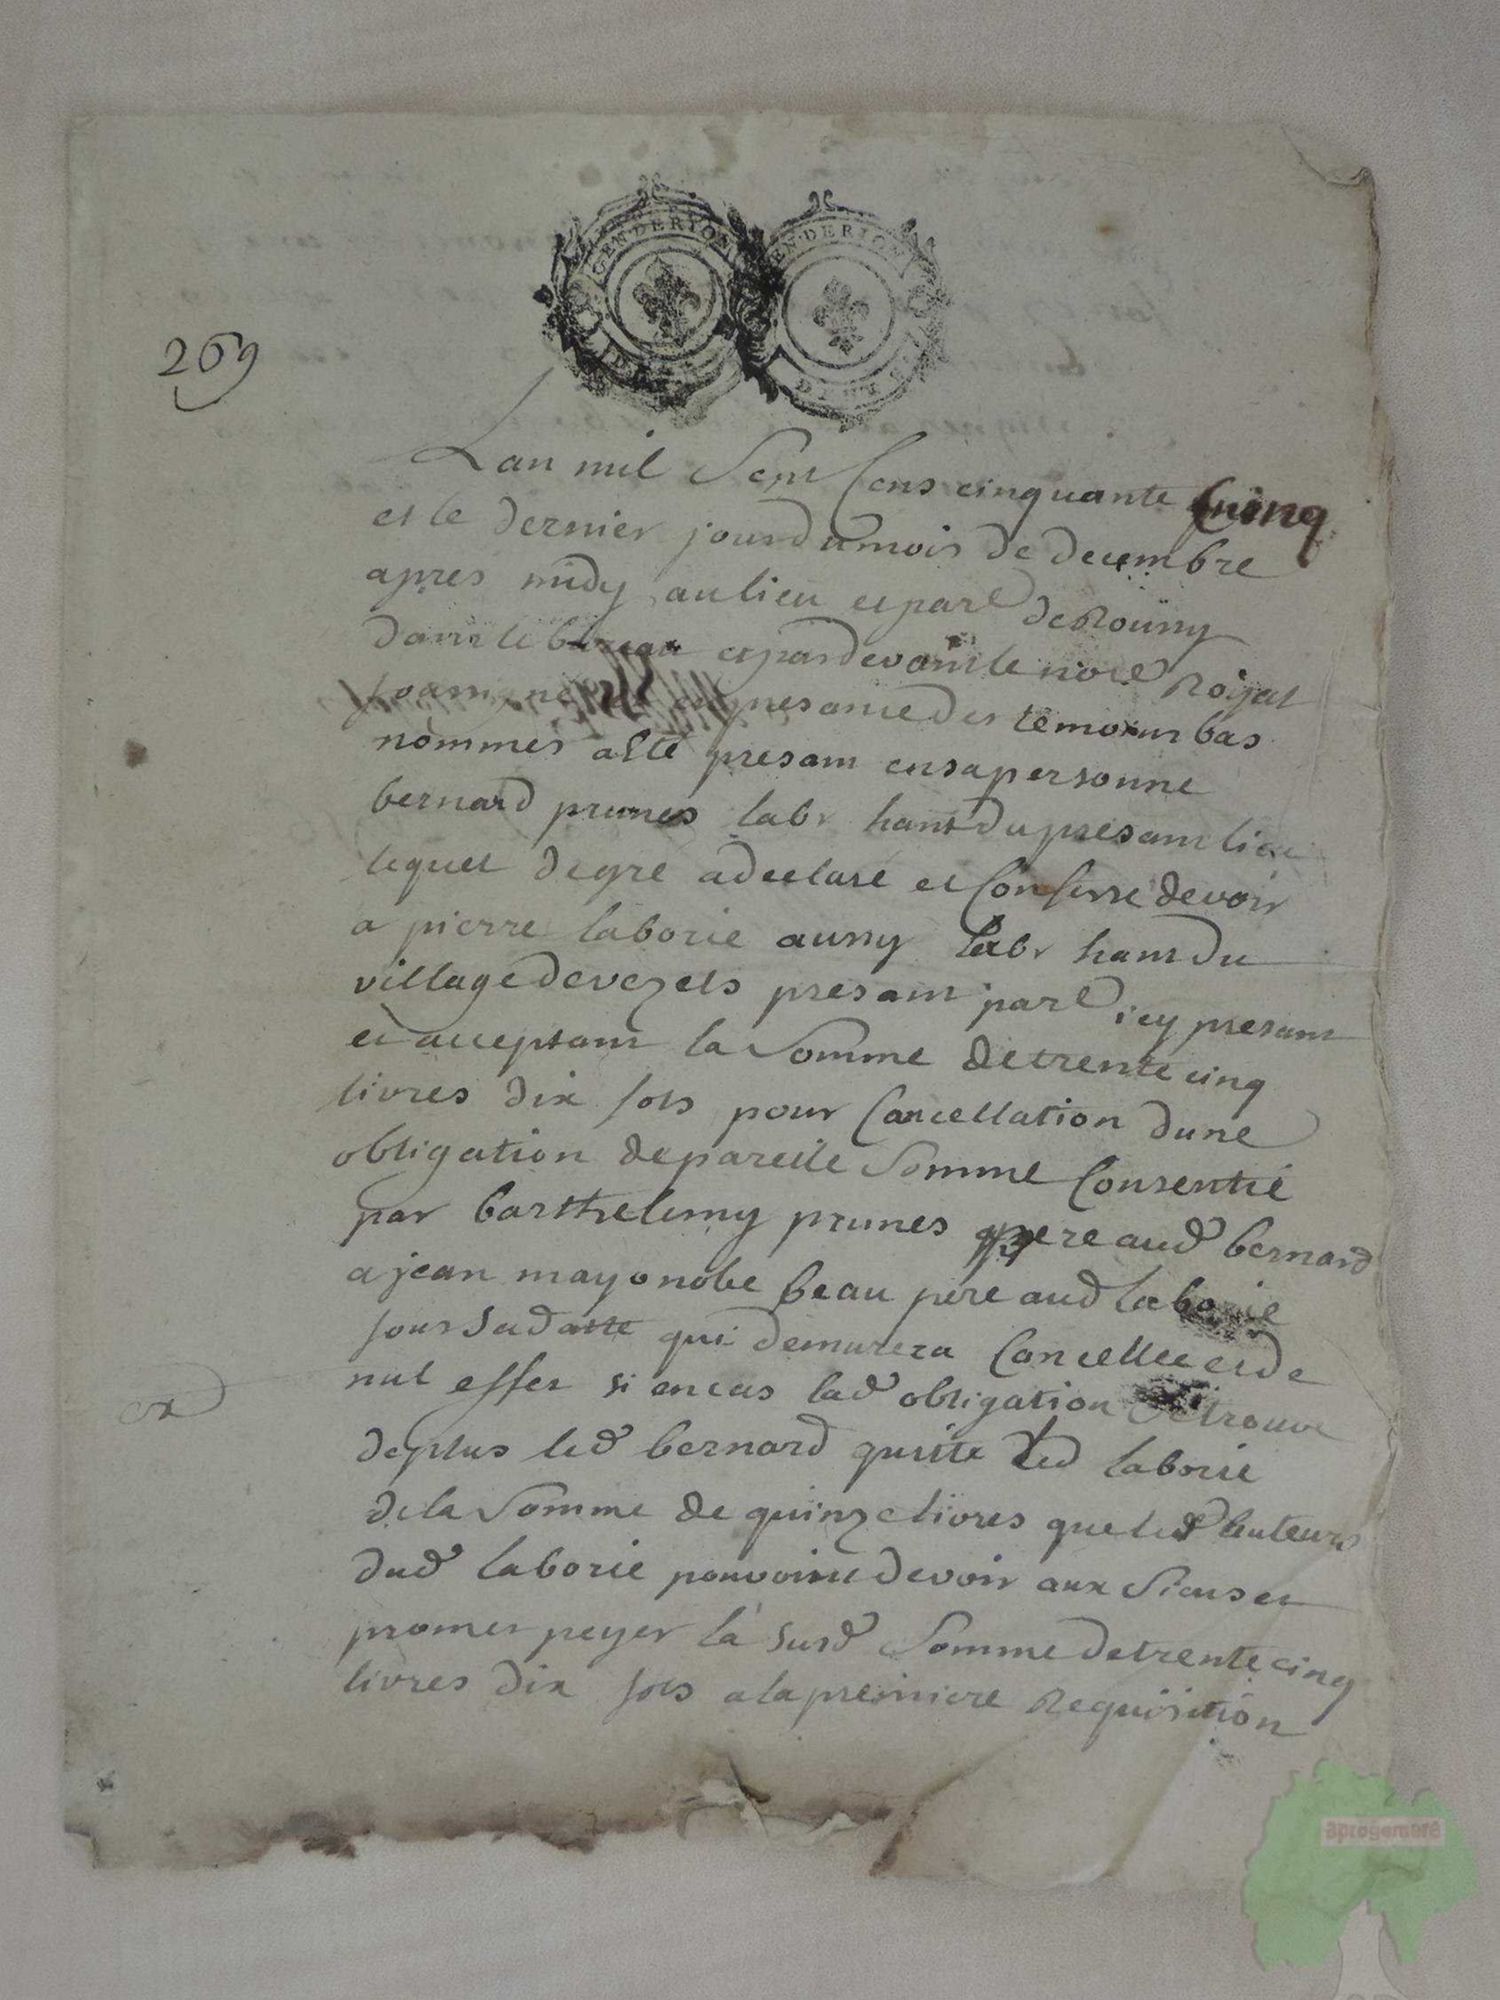 GEN·DERION
GEN·DERION
DEUX S
269
Lan mil sept cens cinquante cuinq
et le dernier jour du mois de decembre
apres midy au lieu et parle de Roussy
dans le bureau et pardevant le nore Royal
et presance des temoins bas
nommes a esté presant en sa personne
bernard prunes labr hant du presant lieu
lequel de gré a declaré et Confessé devoir
a pierre laborie aussy labr hant du
village de vezels presant parle icy presant
et acceptant la somme de trente cinq
livres dix sols pour Cancellation dune
obligation de pareile somme Consentie
par barthelemy prunes pere aud bernard
a jean mayonobe beau pere aud laborie
sous sa datte qui demurera Cancellee et de
nul effet si en cas lad obligation se trouve
de plus led bernard quitte led laborie
de la somme de quinze livres que led auteurs
dud laborie pouvoint devoir aux siens et
promet peyer la susd somme de trente cinq
livres dix sols a la premiere Requisition
aprogemere